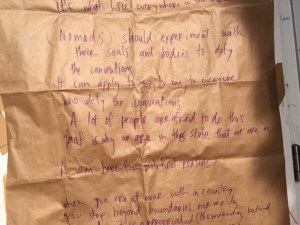 It's what I see everywhere in the
Nomads should experiment with
their souls and bodies to defy
the conventions
It can apply to me to everyone
who defy the conventions
A lot of people are afraid to do this
that is why we are in this state that we are in
I am here for political reasons
when you are at war with a country
you step beyond boundaries normality
appropriated